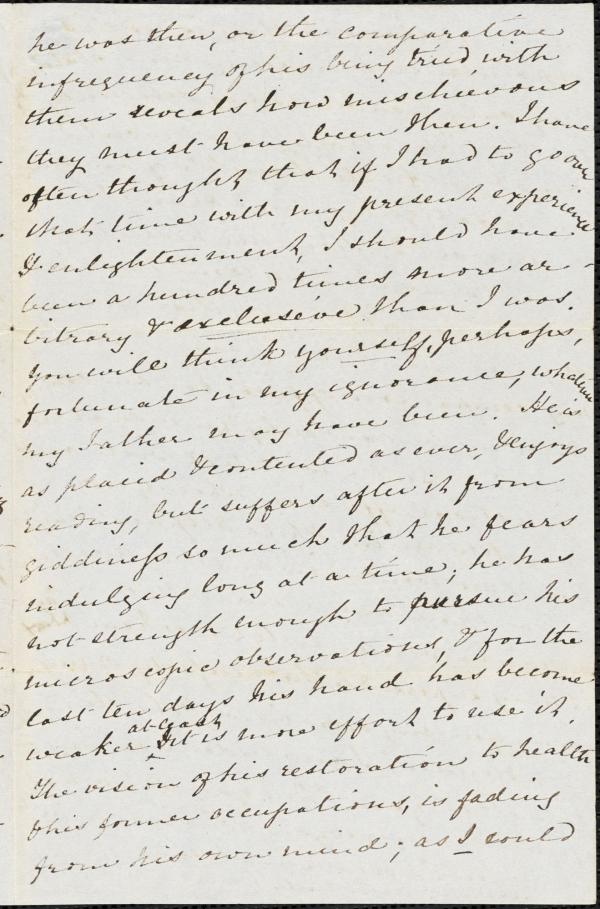 he was then, or the comparative
infrequency of his being tried with
them reveals how mischievous
they must have been then. I have
often thought that if I had to go over
that time with my present experience
& enlightenment, I should have
been a hundred times more ar-
bitrary & exclusive than I was.
You will think yourself, perhaps,
fortunate in my ignorance, whatever
my Father may have been. He is
as placid & contented as ever, & enjoys
reading, but suffers after it from
giddiness so much that he fears
indulging long at a time; he has
not strength enough to pursue his
microscopic observations, & for the
last ten days his hand has become
weaker at least it is more effort to use it.
The vision of his restoration to health
& his former occupations, is fading
from his own mind; as I could